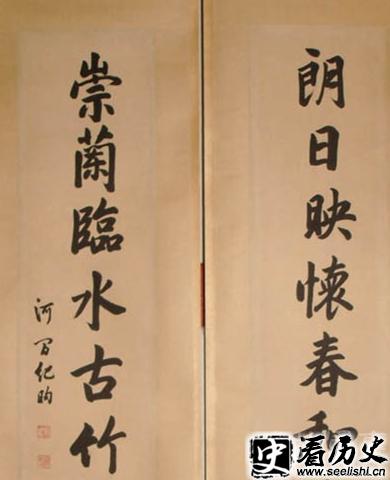 朗日映懷春和
崇蘭臨水古竹
河間紀昀
史看历史
www.seelishi.cn